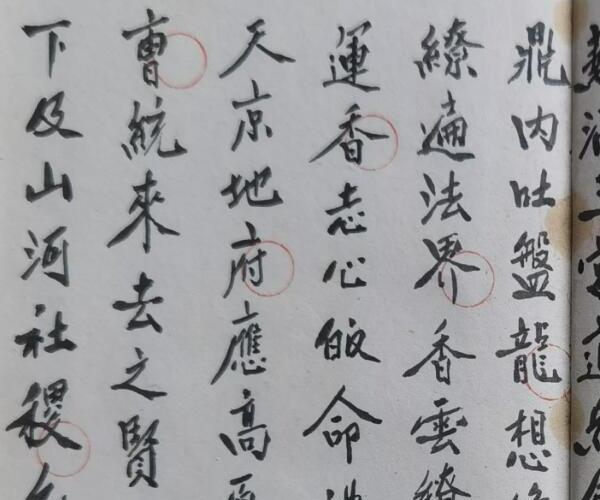 鼎內吐盤龍想
繚遍法界香雲繚
運香志心皈命
天京地府應高
曺統來去之賢
下及山河社稷